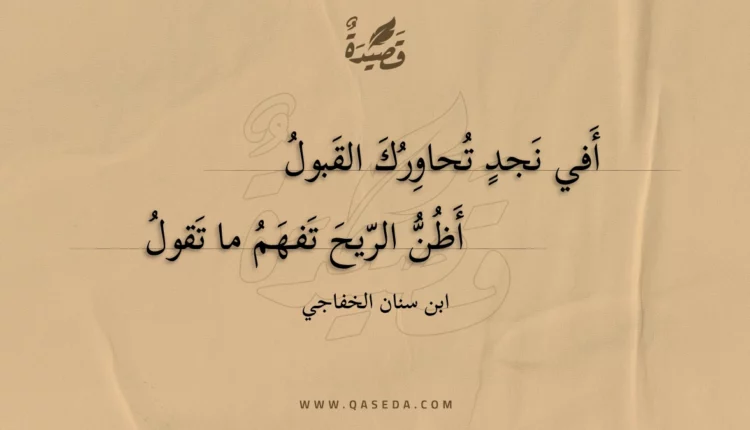 قَصِيدَةٌ
أَفي نَجدٍ تُحاوِرُكَ القَبولُ
أَظُنُّ الرّيحَ تَفهَمُ ما تَقولُ
ابن سنان الخفاجي
WWW.QASEDA.COM